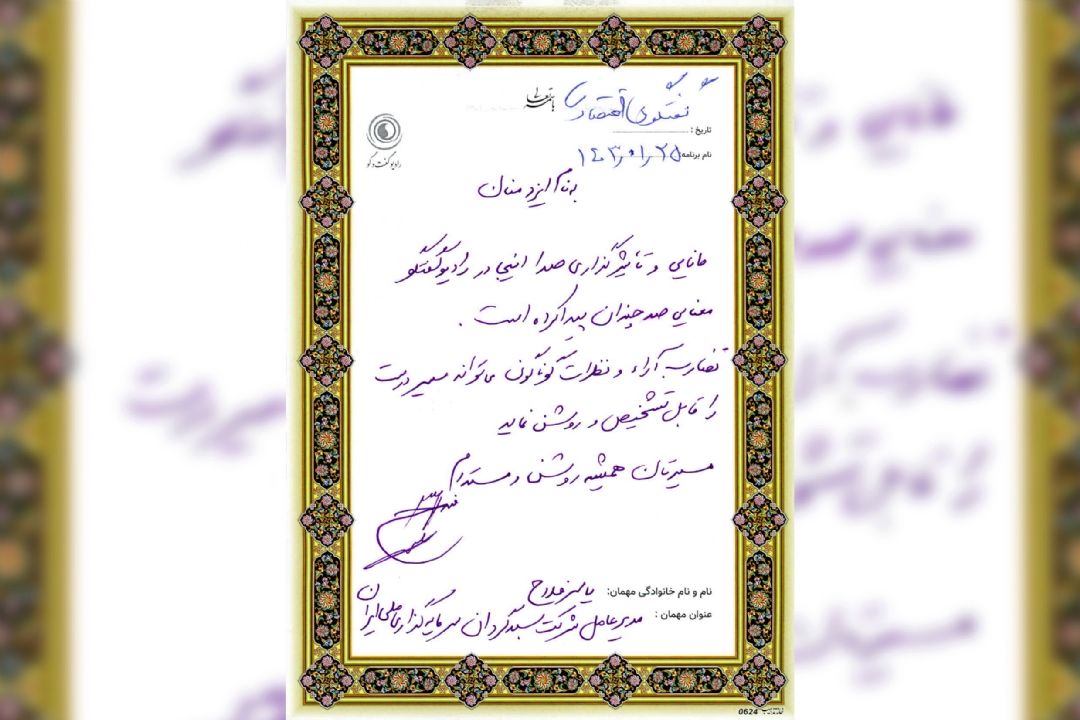 باسمه تعالی
گفتگوی اقتصادی
تاریخ :
نام برنامه ۱۴۰۳/۰۱/۲۵
رادیو گفت و گو
به نام ایزد منان
مانایی و تأثیرگذاری صدا اینجا در رادیو گفتگو
معنایی صد چندان پیدا کرده است .
تضارب آراء و نظرات گوناگون می‌تواند مسیر درست
را قابل تشخیص و روشن نماید
مسیرتان همیشه روشن و مستدام
نام و نام خانوادگی مهمان: یاسر فلاح
عنوان مهمان : مدیرعامل شرکت سبدگردان سرمایه گذاری ملی ایران
0624